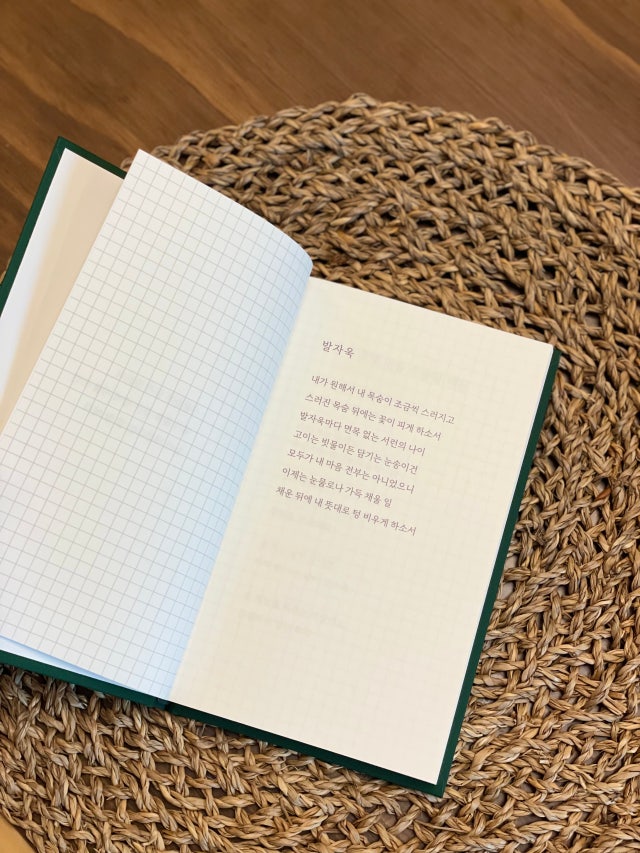 발자욱
내가 원해서 내 목숨이 조금씩 스러지고
스러진 목숨 뒤에는 꽃이 피게 하소서
발자욱마다 면목 없는 서련의 나이
고이는 빗물이든 담기는 눈송이건
모두가 내 마음 전부는 아니었으니
이제는 눈물로나 가득 채울 일
채운 뒤에 내 뜻대로 텅 비우게 하소서